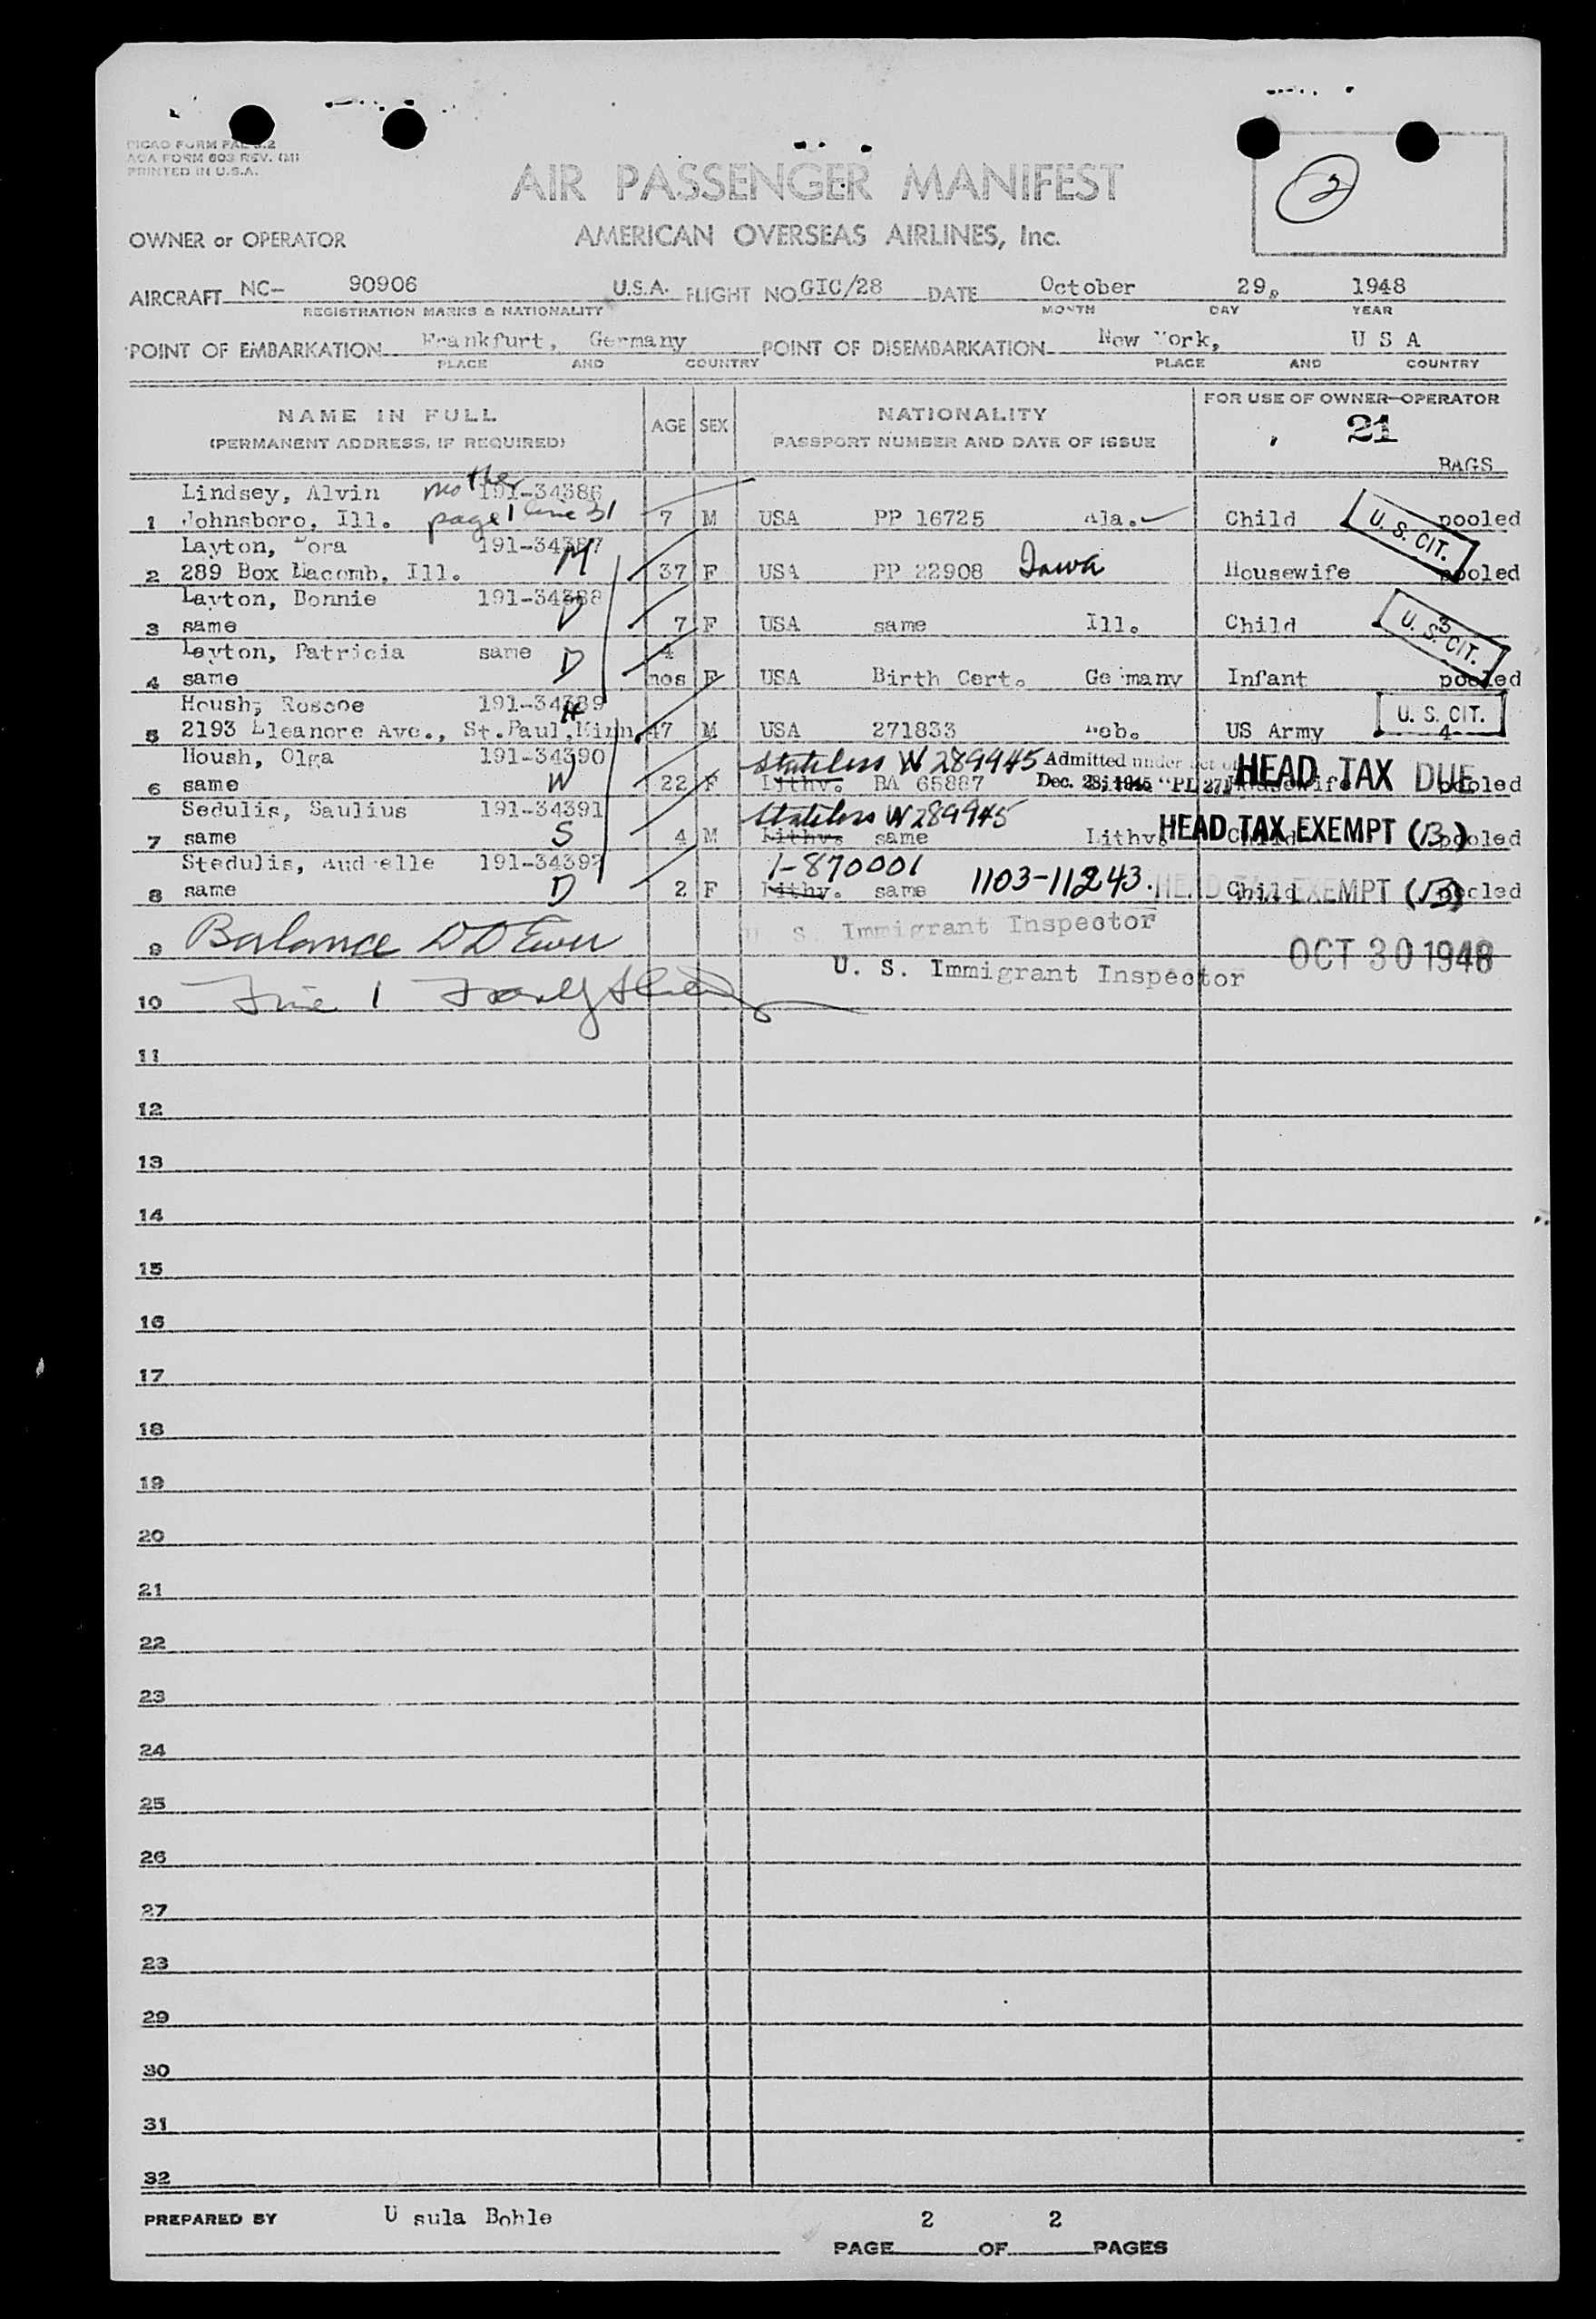 DICAO FORM PAL 3.2
AOA FORM 603 REV. (M)
PRINTED IN U.S.A.
2
AIR PASSENGER MANIFEST
OWNER or OPERATOR AMERICAN OVERSEAS AIRLINES, Inc.
AIRCRAFT NC- 90906 U.S.A. FLIGHT NO GIC/28 DATE October 29, 1948
REGISTRATION MARKS & NATIONALITY MONTH DAY YEAR
POINT OF EMBARKATION Frankfurt, Germany POINT OF DISEMBARKATION New York, U S A
PLACE AND COUNTRY PLACE AND COUNTRY
NAME IN FULL AGE SEX NATIONALITY FOR USE OF OWNER-OPERATOR
(PERMANENT ADDRESS, IF REQUIRED) PASSPORT NUMBER AND DATE OF ISSUE 21
BAGS
Lindsey, Alvin mother 191-34386
1 Johnsboro, Ill. page 1 line 31 7 M USA PP 16725 Ala. Child U. S. CIT. pooled
Layton, Dora 191-34387
2 289 Box Macomb, Ill. M 37 F USA PP 22908 Iowa Housewife pooled
Layton, Donnie 191-34388
3 same D 7 F USA same Ill. Child 3 U. S. CIT.
Layton, Patricia same 4
4 same D mos F USA Birth Cert. Germany Infant pooled
Housh, Roscoe 191-34389
5 2193 Eleanore Ave., St.Paul,Minn. H 47 M USA 271833 Neb. US Army 4 U. S. CIT.
Housh, Olga 191-34390 Stateless W 289945 Admitted under Act of
6 same W 22 F Lithv. BA 65887 Dec. 28, 1945 "PL 271 Housewife HEAD TAX DUE pooled
Sedulis, Saulius 191-34391 Stateless W 289945
7 same S 4 M Lithv. same Lithv. Child HEAD TAX EXEMPT (B) pooled
Stedulis, Aud elle 191-34392 1-870001
8 same D 2 F Lithv. same 1103-11243. Child HEAD TAX EXEMPT (B) pooled
U. S. Immigrant Inspector
9 Balance
U. S. Immigrant Inspector OCT 30 1948
10 Line 1
11
12
13
14
15
16
17
18
19
20
21
22
23
24
25
26
27
28
29
30
31
32
PREPARED BY U sula Bohle
PAGE 2 OF 2 PAGES